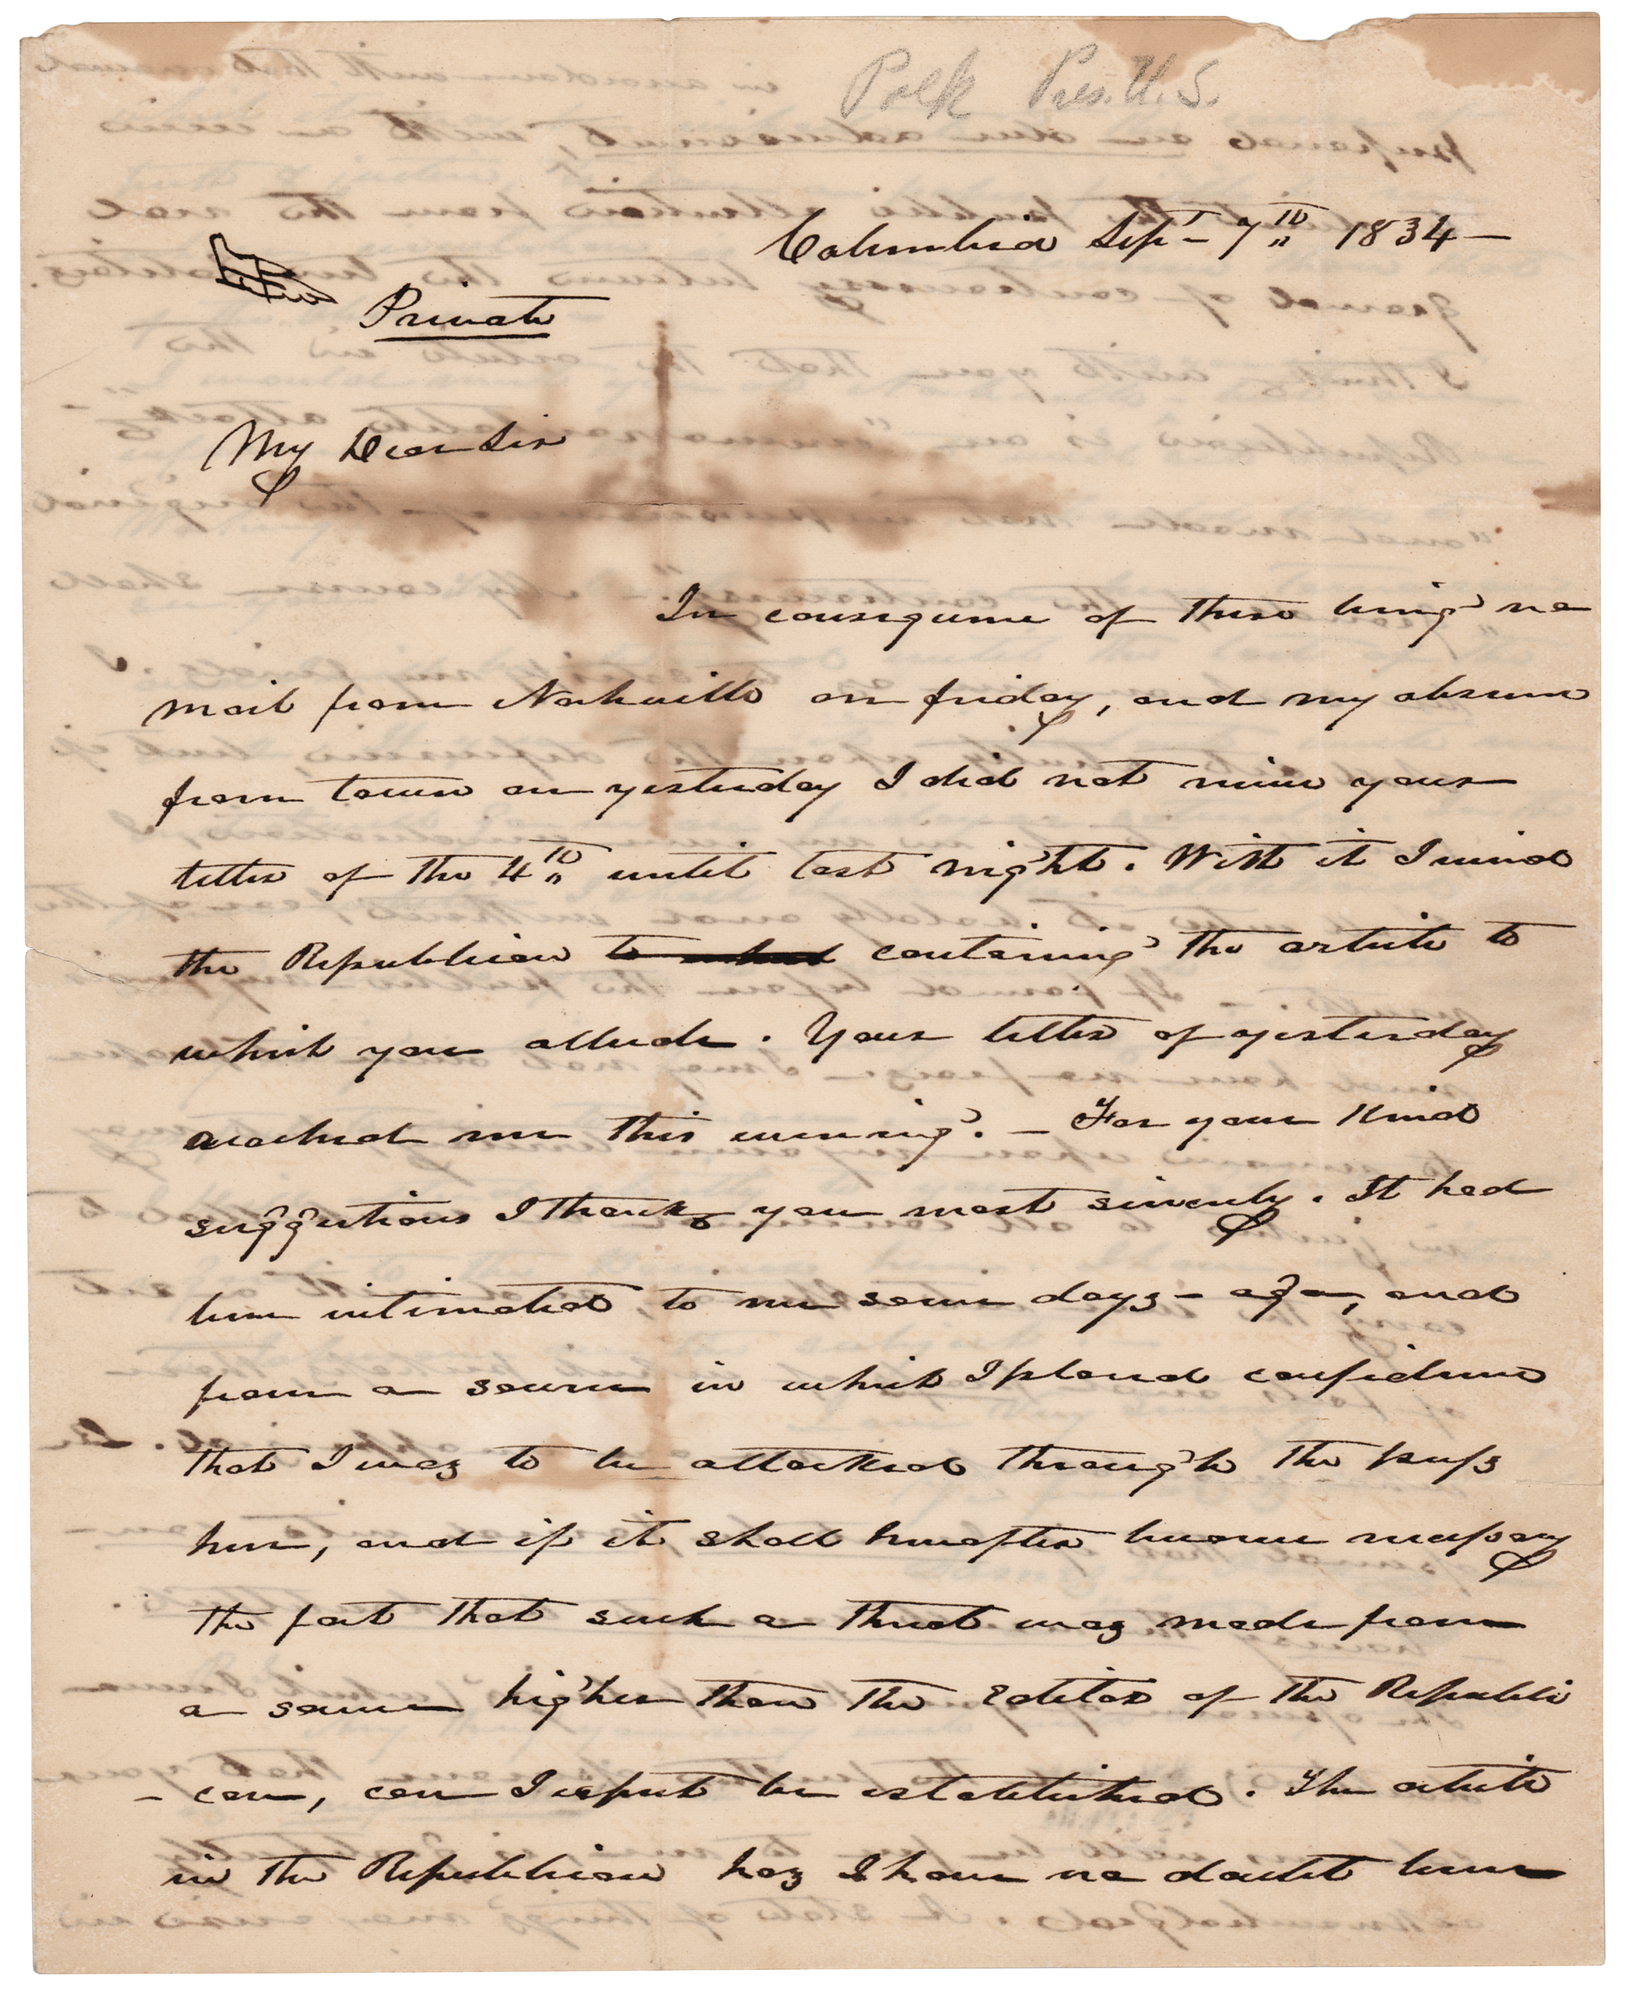 Polk Pres. U.S.
Columbia Sept. 7th 1834—
Private
My Dear Sir
In consequence of there being no
mail from Nashville on friday, and my absence
from town on yesterday I did not receive your
letter of the 4th until last night. With it I received
the Republican to containing the article to
which you allude. Your letter of yesterday
reached me this evening. — For your kind
suggestions I thank you most sincerely. It had
been intimated to me some days ago, and
from a source in which I placed confidence
that I was to be attacked through the press
here, and if it shall hereafter become necessary
the fact that such a threat was made from
a source higher than the Editor of the Republi
-can, can I expect be established. The article
in the Republican has I have no doubt been